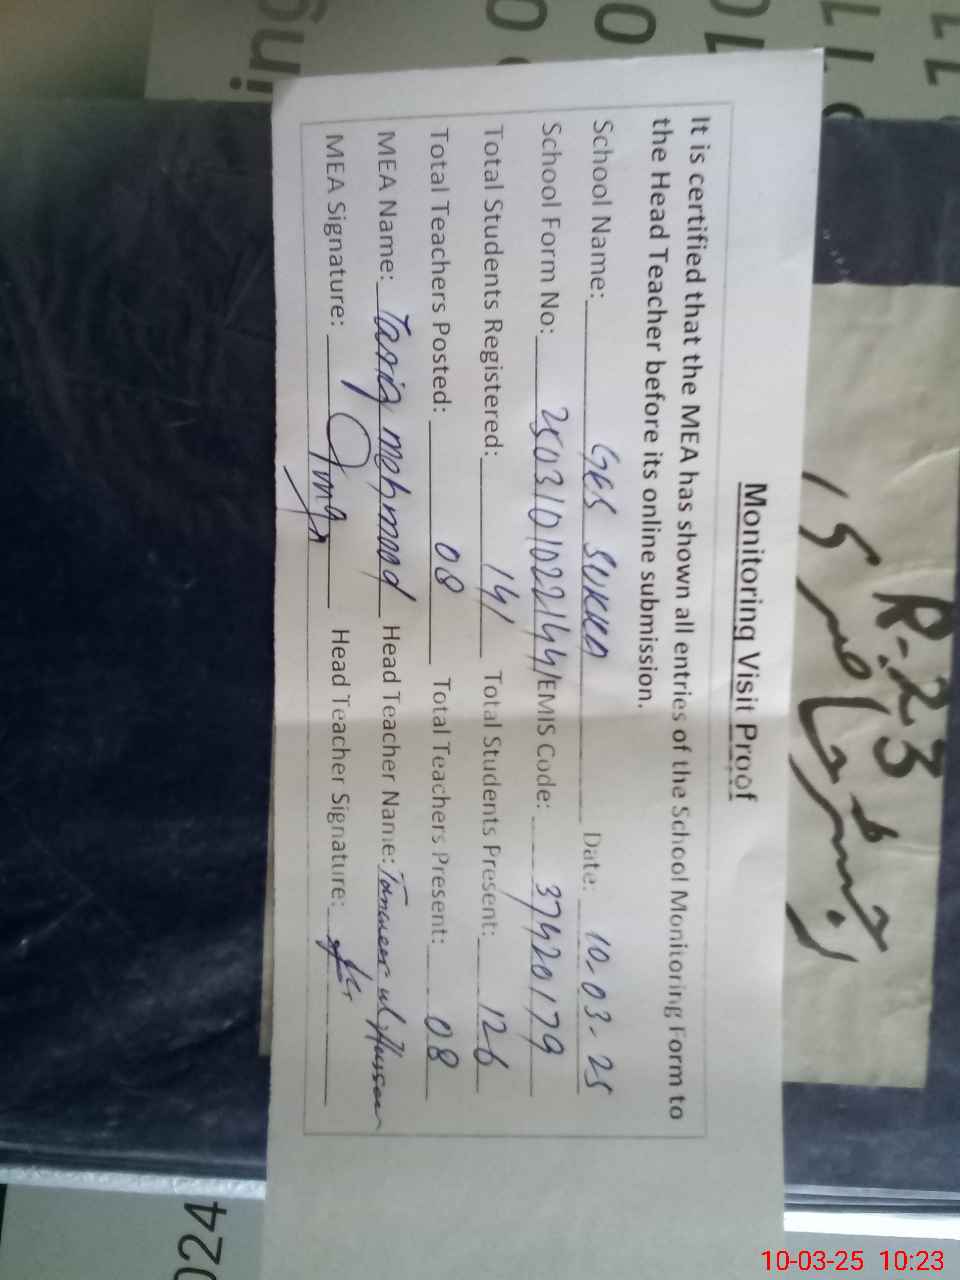 Monitoring Visit Proof
It is certified that the MEA has shown all entries of the School Monitoring Form to
the Head Teacher before its online submission.
School Name: GES SUKKA Date: 10-03-25
School Form No: 2503101022144/EMIS Code: 37420179
Total Students Registered: 141 Total Students Present: 126
Total Teachers Posted: 08 Total Teachers Present: 08
MEA Name: Tariq mehmood Head Teacher Name: Tanveer ul Hassan
MEA Signature: Head Teacher Signature:
R-23
رجسٹر حاضری
10-03-25 10:23